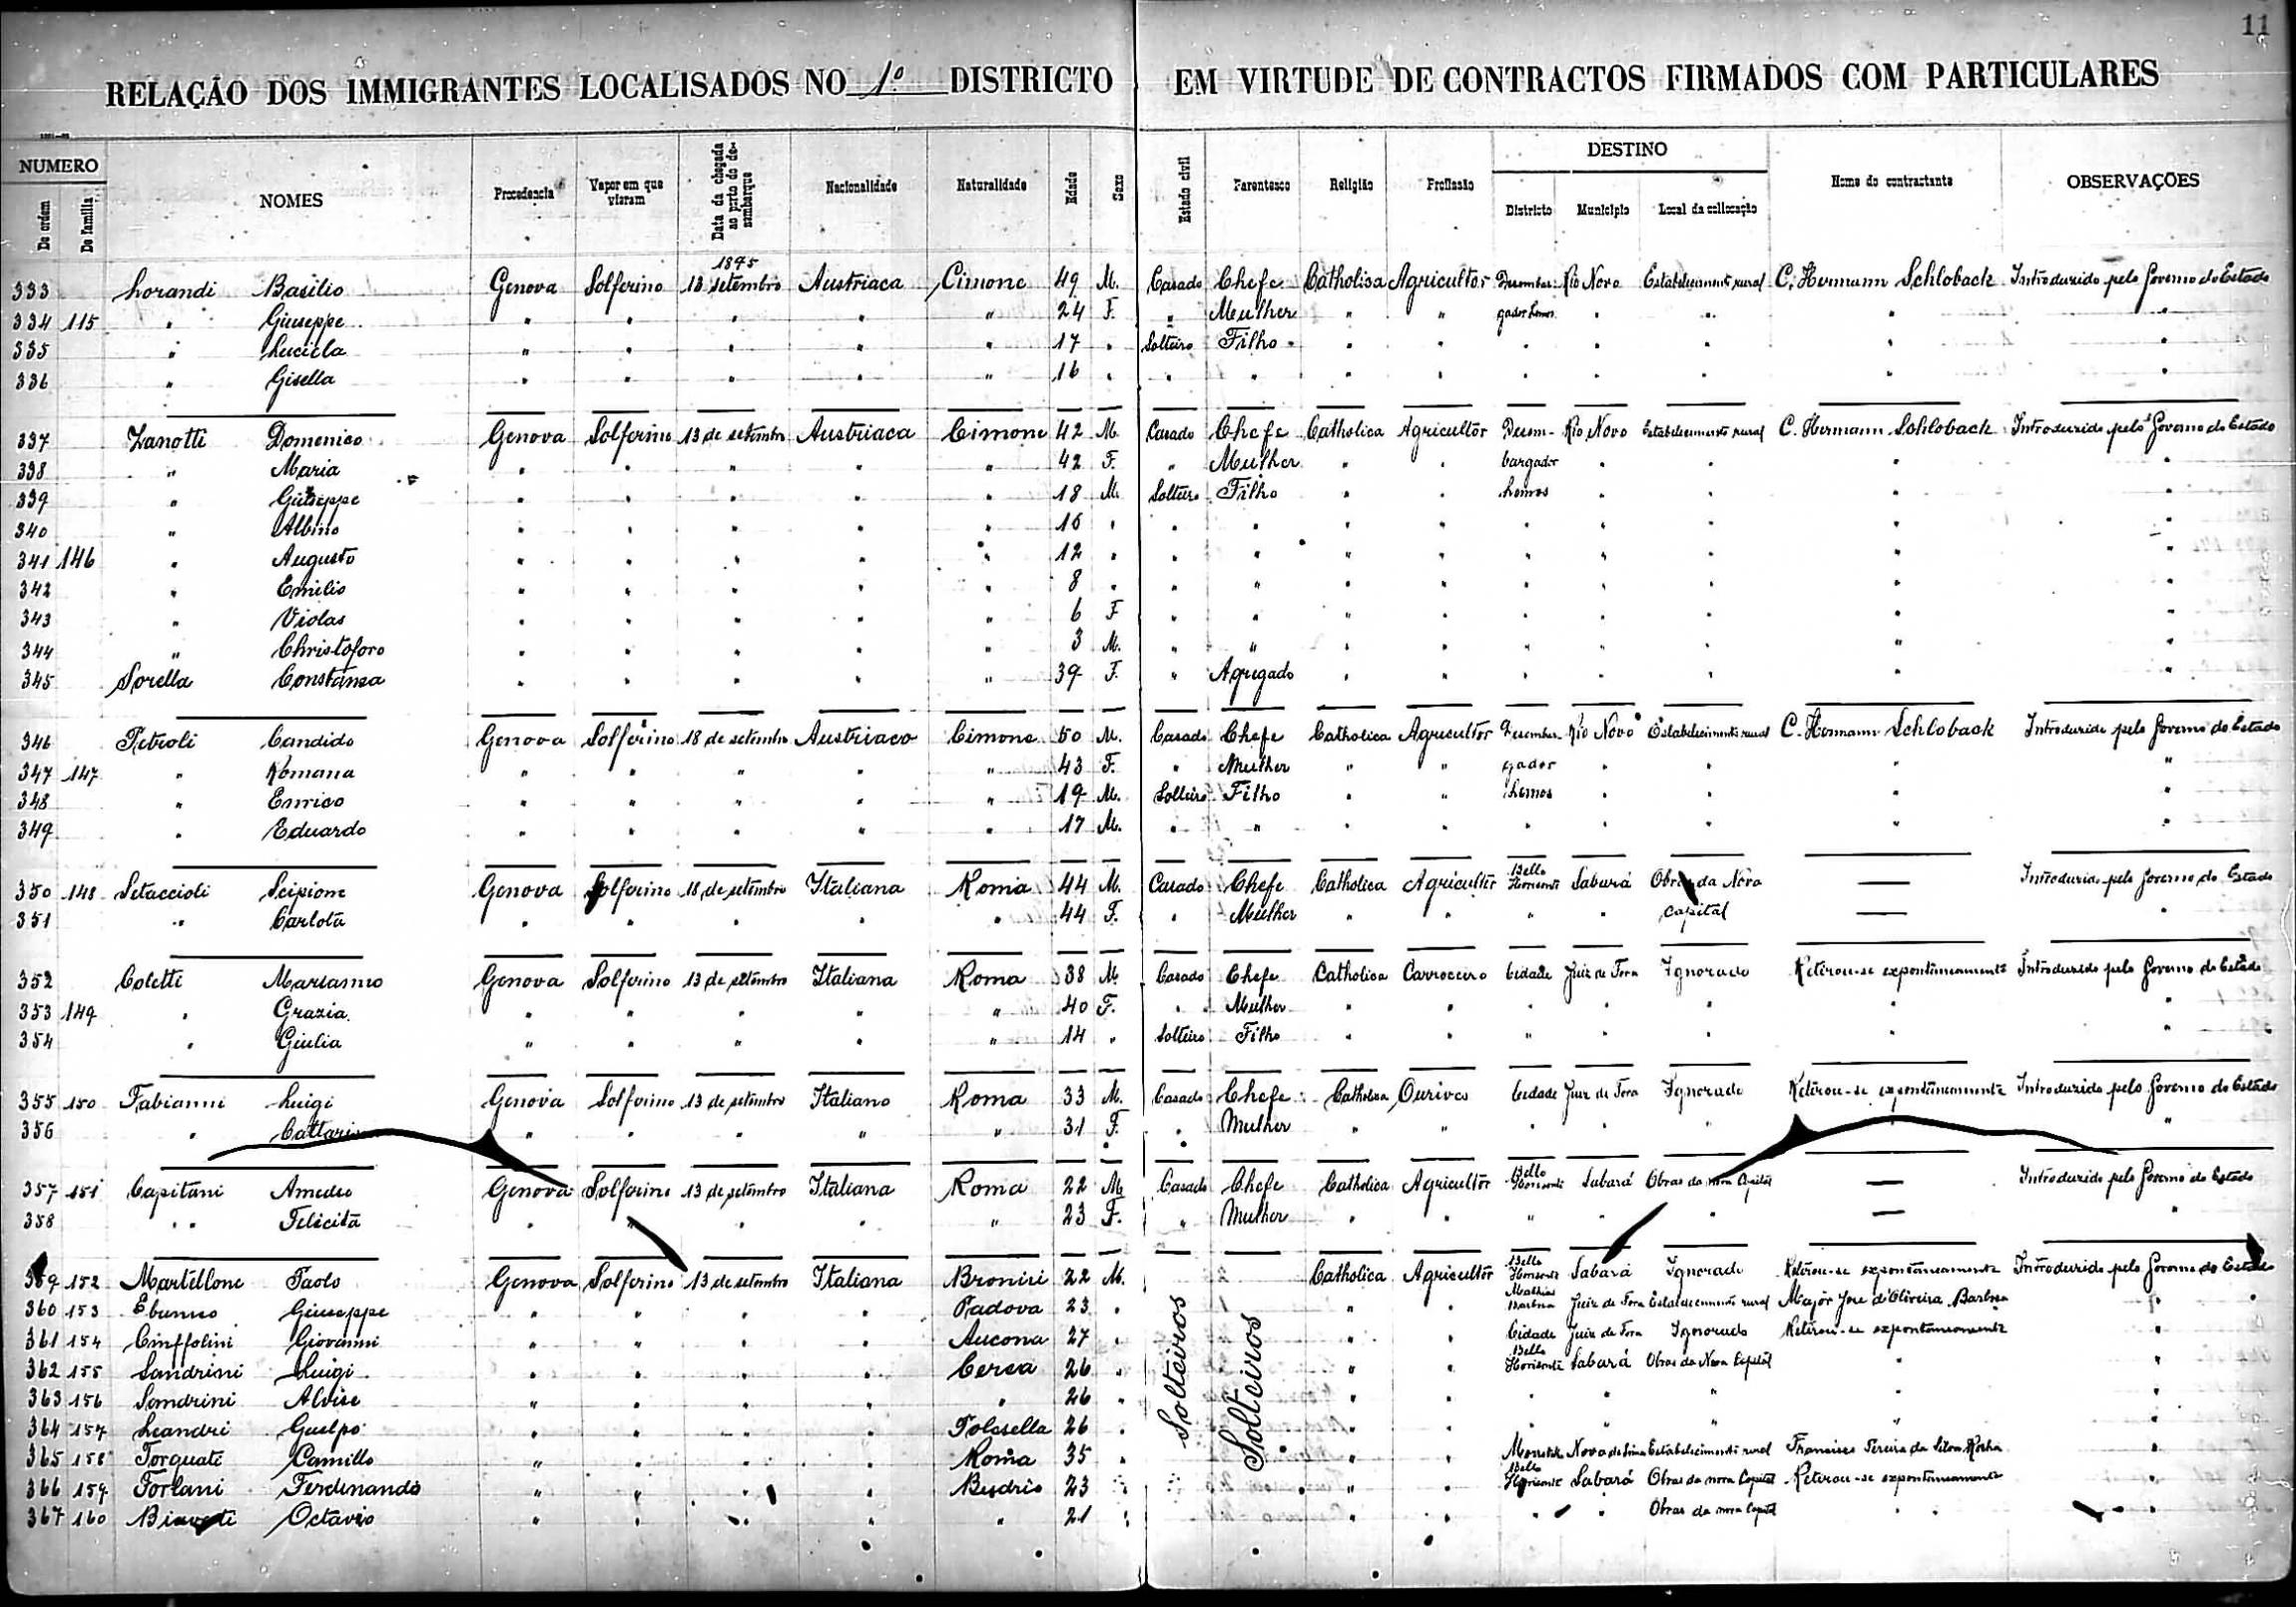 11
RELAÇÃO DOS IMMIGRANTES LOCALISADOS NO 1º DISTRICTO EM VIRTUDE DE CONTRACTOS FIRMADOS COM PARTICULARES
NUMERO De ordem De familia NOMES Procedencia Vapor em que vieram Data da chegada ao porto do desembarque Nacionalidade Naturalidade Edade Sexo Estado civil Parentesco Religião Profissão DESTINO Districto Municipio Local da collocação Nome do contractante OBSERVAÇÕES
1895
333 Lorandi Basilio Genova Solferino 13 setembro Austriaca Cimone 49 M. Casado Chefe Catholica Agricultor Desembar- Rio Novo Estabelecimento rural C. Hermann Schloback Introduzido pelo Governo do Estado
334 115 " Giuseppe " " " " " 24 F. " Mulher " " gador Lemos " " " "
335 " Lucicla " " " " " 17 " Solteiro Filho " " " " " " "
336 " Gisella " " " " " 16 " " " " " " " " " "
337 Zanotti Domenico Genova Solferino 13 de setembro Austriaca Cimone 42 M. Casado Chefe Catholica Agricultor Desem- Rio Novo Estabelecimento rural C. Hermann Schloback Introduzido pelo Governo do Estado
338 " Maria " " " " " 42 F. " Mulher " " bargador " " " "
339 " Guiseppe " " " " " 18 M. Solteiro Filho " " Lemos " " " "
340 " Albino " " " " " 16 " " " " " " " " " "
341 146 " Augusto " " " " " 12 " " " " " " " " " "
342 " Emilio " " " " " 8 " " " " " " " " " "
343 " Violas " " " " " 6 F " " " " " " " " "
344 " Christoforo " " " " " 3 M. " " " " " " " " "
345 Sorella Constanza " " " " " 39 F. " Agregado " " " " " " "
346 Petroli Candido Genova Solferino 18 de setembro Austriaco Cimone 50 M. Casado Chefe Catholica Agricultor Desembar- Rio Novo Estabelecimento rural C. Hermann Schloback Introduzido pelo Governo do Estado
347 147 " Romana " " " " " 43 F. " Mulher " " gador " " " "
348 " Enrico " " " " " 19 M. Solteiro Filho " " Lemos " " " "
349 " Eduardo " " " " " 17 M. " " " " " " " " "
350 148 Setaccioli Scipione Genova Solferino 18 de setembro Italiana Roma 44 M. Casado Chefe Catholica Agricultor Bello Horisonte Sabará Obras da Nova — Introduzido pelo Governo do Estado
351 " Carlota " " " " " 44 F. " Mulher " " " " Capital — "
352 Coletti Marianno Genova Solferino 13 de setembro Italiana Roma 38 M Casado Chefe Catholica Carroceiro Cidade Juiz de Fora Ignorado Retirou-se expontaneamente Introduzido pelo Governo do Estado
353 149 " Grazia " " " " " 40 F. " Mulher " " " " " " "
354 " Giulia " " " " " 14 " Solteiro Filho " " " " " " "
355 150 Fabianni Luigi Genova Solferino 13 de setembro Italiano Roma 33 M. Casado Chefe Catholica Ourives Cidade Juiz de Fora Ignorado Retirou-se expontaneamente Introduzido pelo Governo do Estado
356 " " " " " " 31 F. " Mulher " " " " " " "
357 151 Capitani Amedeo Genova Solferino 13 de setembro Italiana Roma 22 M Casado Chefe Catholica Agricultor Bello Horisonte Sabará Obras da nova Capital — Introduzido pelo Governo do Estado
358 " Felicita " " " " " 23 F. " Mulher " " " " " — "
359 152 Martellone Paolo Genova Solferino 13 de setembro Italiana 22 M. Solteiros Solteiros Catholica Agricultor Bello Horisonte Sabará Ignorado Retirou-se expontaneamente Introduzido pelo Governo do Estado
360 153 Giuseppe " " " " Padova 23 " " " Mathias Barbosa Juiz de Fora Estabelecimento rural Major José d'Oliveira Barbosa "
361 154 Giovanni " " " " Ancona 27 " " " Cidade Juiz de Fora Ignorado Retirou-se expontaneamente "
362 155 Sandrini Luigi " " " " Cerea 26 " " " Bello Horisonte Sabará Obras da Nova Capital " "
363 156 Sandrini Alvise " " " " " 26 " " " " " " " "
364 157 Leandri Guelpo " " " " Polesella 26 " " " " " " " "
365 158 Torquati Camillo " " " " Roma 35 " " " Nova de Lima Estabelecimento rural Francisco Pereira da Silva Rocha "
366 159 Forlani Ferdinando " " " " Budrio 23 " " " Bello Horisonte Sabará Obras da nova Capital Retirou-se expontaneamente "
367 160 Octavio " " " " " 21 " " " " " Obras da nova Capital " "